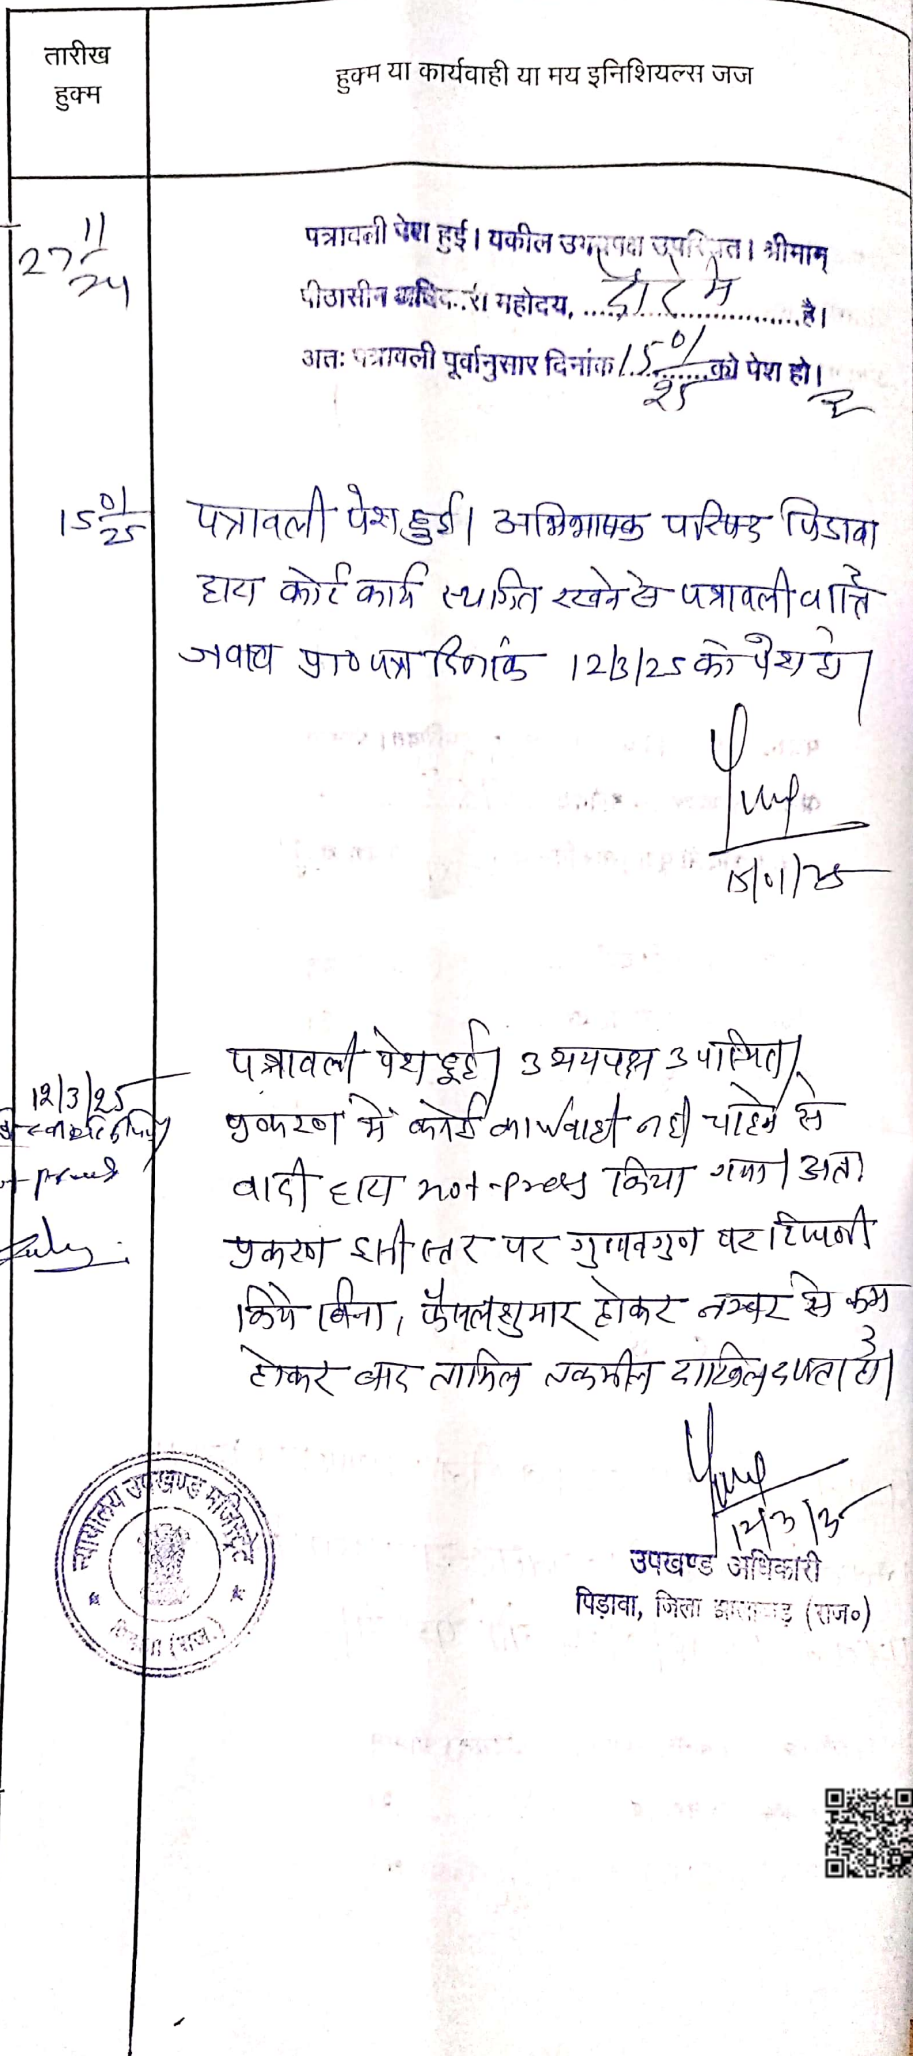 तारीख
हुक्म
हुक्म या कार्यवाही या मय इनिशियल्स जज
27 11/24
पत्रावली पेश हुई। वकील उभयपक्ष उपस्थित। श्रीमान्
पीठासीन अधिकारी महोदय, ...... दौरे में ...... है।
अतः पत्रावली पूर्वानुसार दिनांक 15 01/25 को पेश हो।
15 01/25
पत्रावली पेश हुई। अभिभाषक परिषद पिडावा
द्वारा कोर्ट कार्य स्थगित रखने से पत्रावली वास्ते
जवाब प्रा० पत्र दिनांक 12/3/25 को पेश हो।
15/01/25
12/3/25
पत्रावली पेश हुई। उभयपक्ष उपस्थित।
प्रकरण में कोई कार्यवाही नहीं चाहने से
वादी द्वारा not-press किया गया। अतः
प्रकरण इसी स्तर पर गुणावगुण पर टिप्पणी
किये बिना, फैसलशुमार होकर नम्बर से कम
होकर बाद तामिल तकमील दाखिल दफ्तर हो।
12/3/25
उपखण्ड अधिकारी
पिड़ावा, जिला झालावाड़ (राज०)
न्यायालय उपखण्ड मजिस्ट्रेट
(राज.)